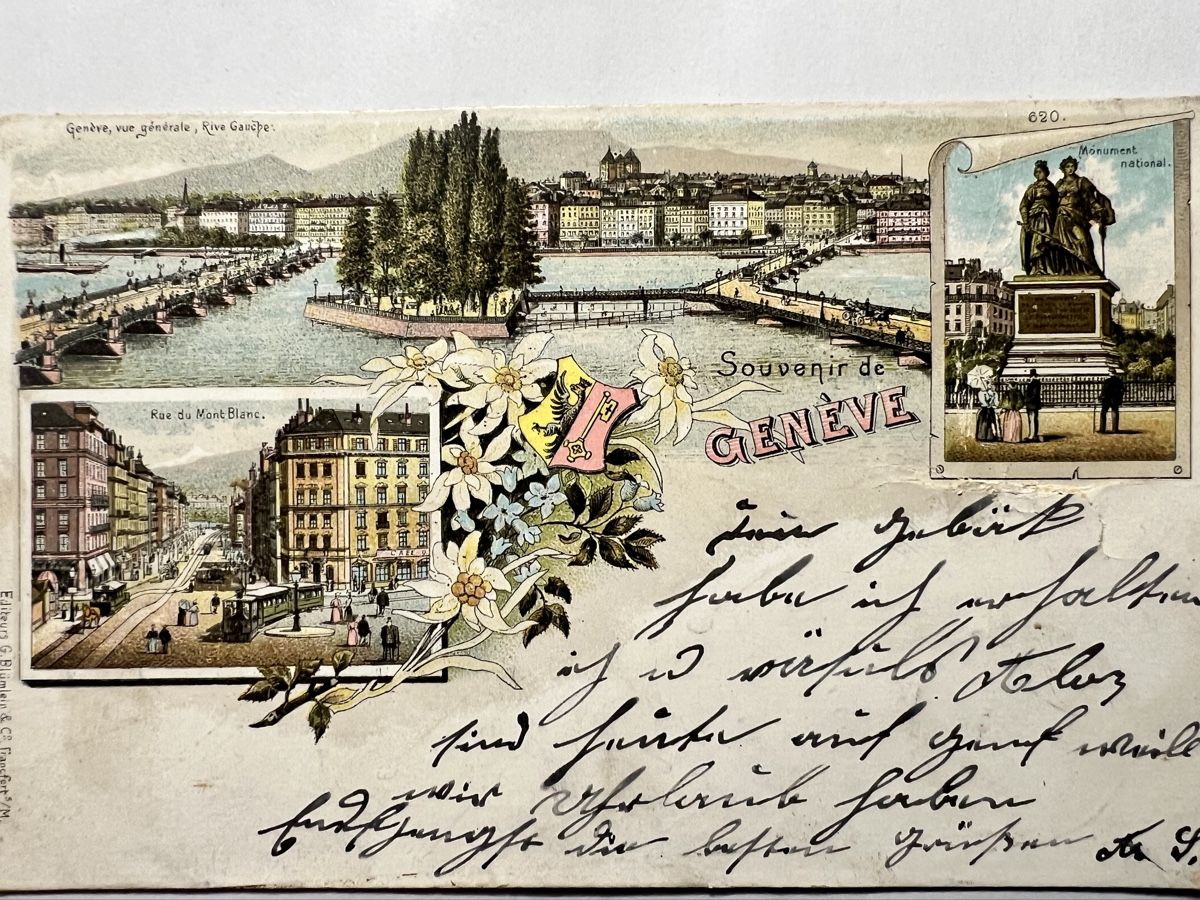 Genève, vue générale, Rive Gauche.
620.
Monument
national.
Souvenir de
GENÈVE
Rue du Mont Blanc.
CAFÉ
Editeurs G. Blümlein & Cº. Francfort s/M.
Gebäk
habe ich erhalten
ich u
sind heute auf Genf weill
wir Uhrlaub haben
die besten Grüßen